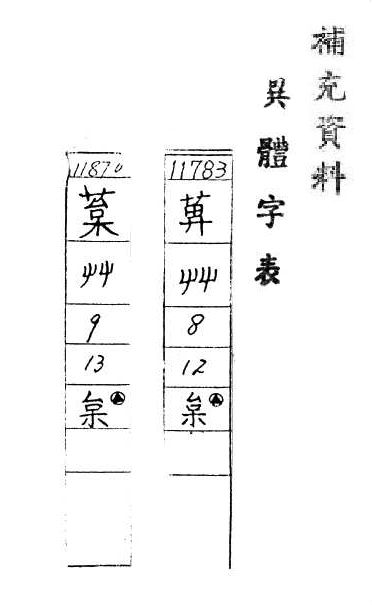 補充資料
異體字表
11783
艸
8
12
枲
11870
葈
艸
9
13
枲